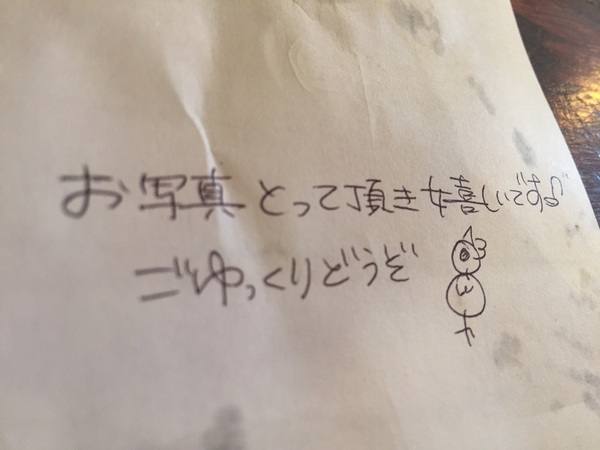 お写真とって頂き嬉しいです♪
ごゆっくりどうぞ